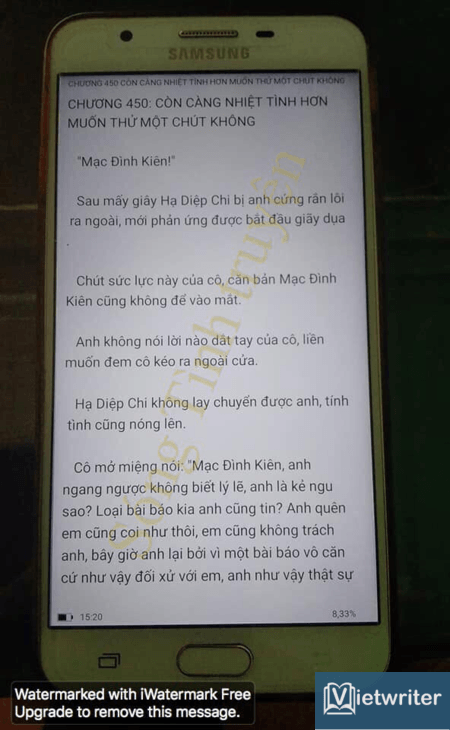 SAMSUNG
CHƯƠNG 450 CÒN CÀNG NHIỆT TÌNH HƠN MUỐN THỬ MỘT CHÚT KHÔNG
CHƯƠNG 450: CÒN CÀNG NHIỆT TÌNH HƠN
MUỐN THỬ MỘT CHÚT KHÔNG
"Mạc Đình Kiên!"
Sau mấy giây Hạ Diệp Chi bị anh cứng rắn lôi
ra ngoài, mới phản ứng được bắt đầu giãy dụa
.
Chút sức lực này của cô, căn bản Mạc Đình
Kiên cũng không để vào mắt.
Anh không nói lời nào dắt tay của cô, liền
muốn đem cô kéo ra ngoài cửa.
Hạ Diệp Chi không lay chuyển được anh, tính
tình cũng nóng lên.
Cô mở miệng nói: "Mạc Đình Kiên, anh
ngang ngược không biết lý lẽ, anh là kẻ ngu
sao? Loại bài báo kia anh cũng tin? Anh quên
em cũng coi như thôi, em cũng không trách
anh, bây giờ anh lại bởi vì một bài báo vô căn
cứ như vậy đối xử với em, anh như vậy thật sự
Sủng Tình truyện
15:20
8,33%
Watermarked with iWatermark Free
Upgrade to remove this message.
Vietwriter